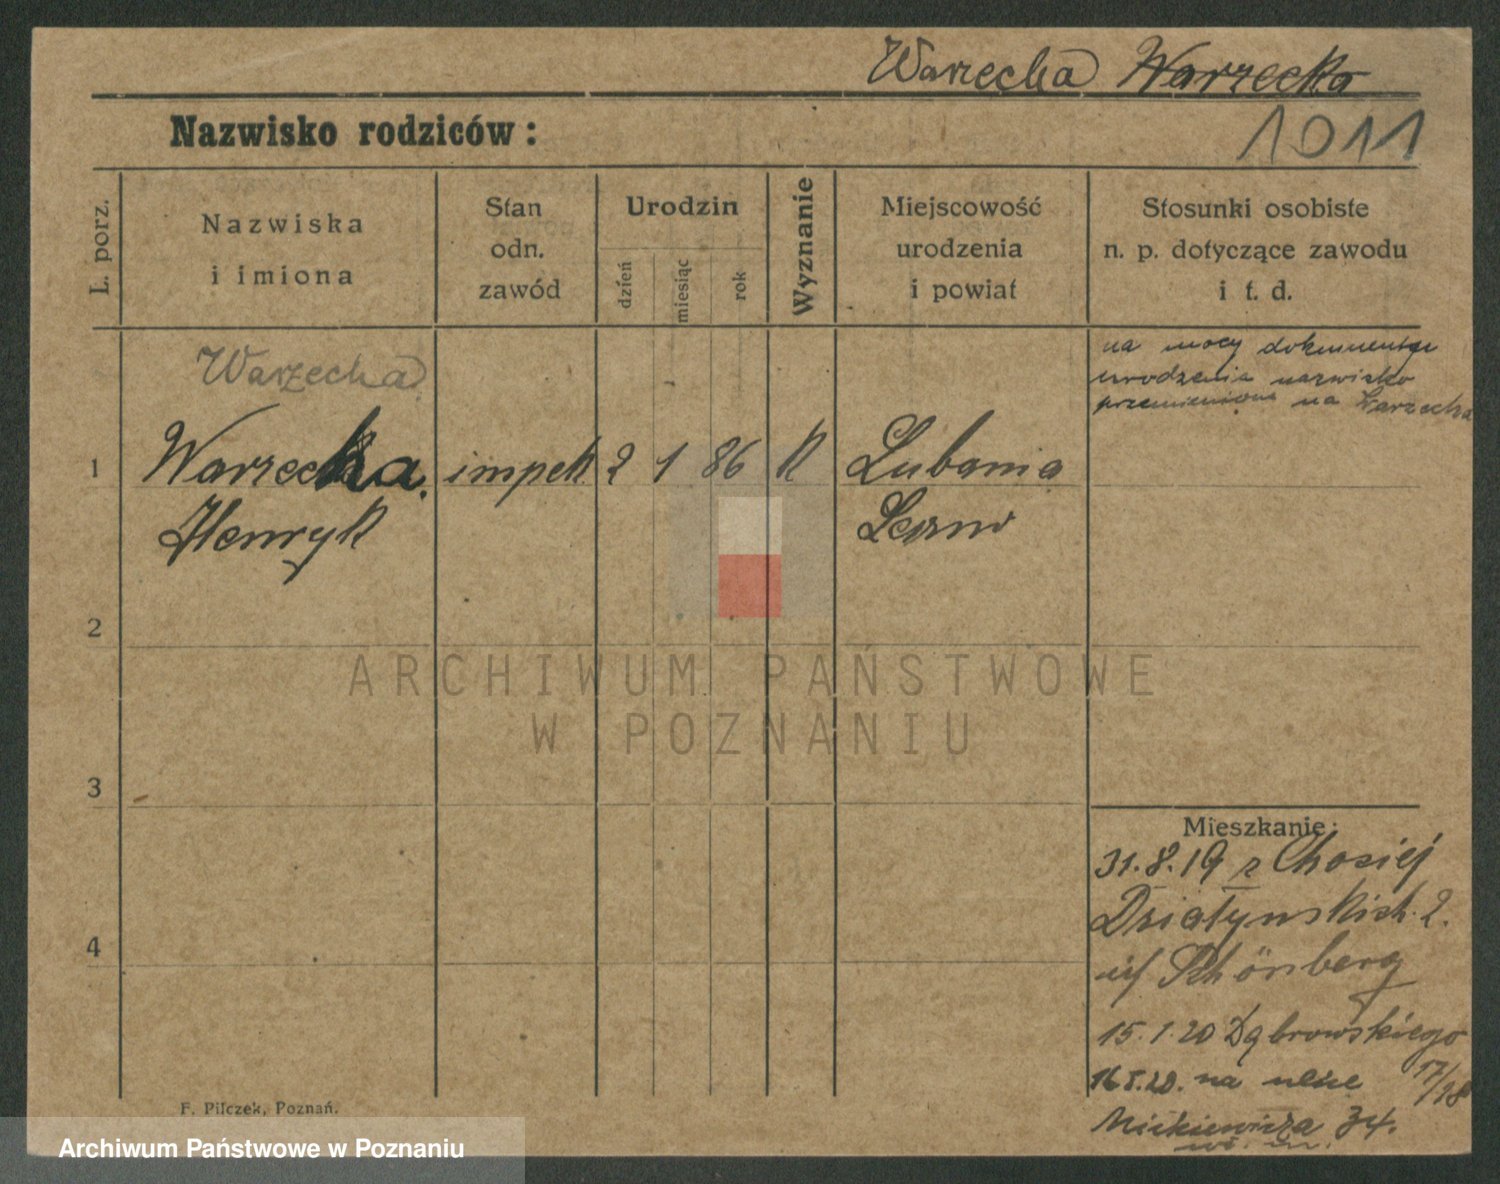 Warzecha Warzecka
Nazwisko rodziców:
1011
L. porz.
Nazwiska
i imiona
Stan
odn.
zawód
Urodzin
dzień
miesiąc
rok
Wyznanie
Miejscowość
urodzenia
i powiat
Stosunki osobiste
n. p. dotyczące zawodu
i t. d.
na mocy dokumentu
urodzenia nazwisko
przemienione na Warzecha
Warzecha
1 Warzecha impek 2 1 86 K Lubania
Henryk
2
3
4
ARCHIWUM PAŃSTWOWE
W POZNANIU
Mieszkanie:
31.8.19 z
Działyńskich 2.
Schönberg
15.1.20 Dąbrowskiego
17/18
na ulice
Mickiewicza 34.
F. Pilczek, Poznań.
Archiwum Państwowe w Poznaniu